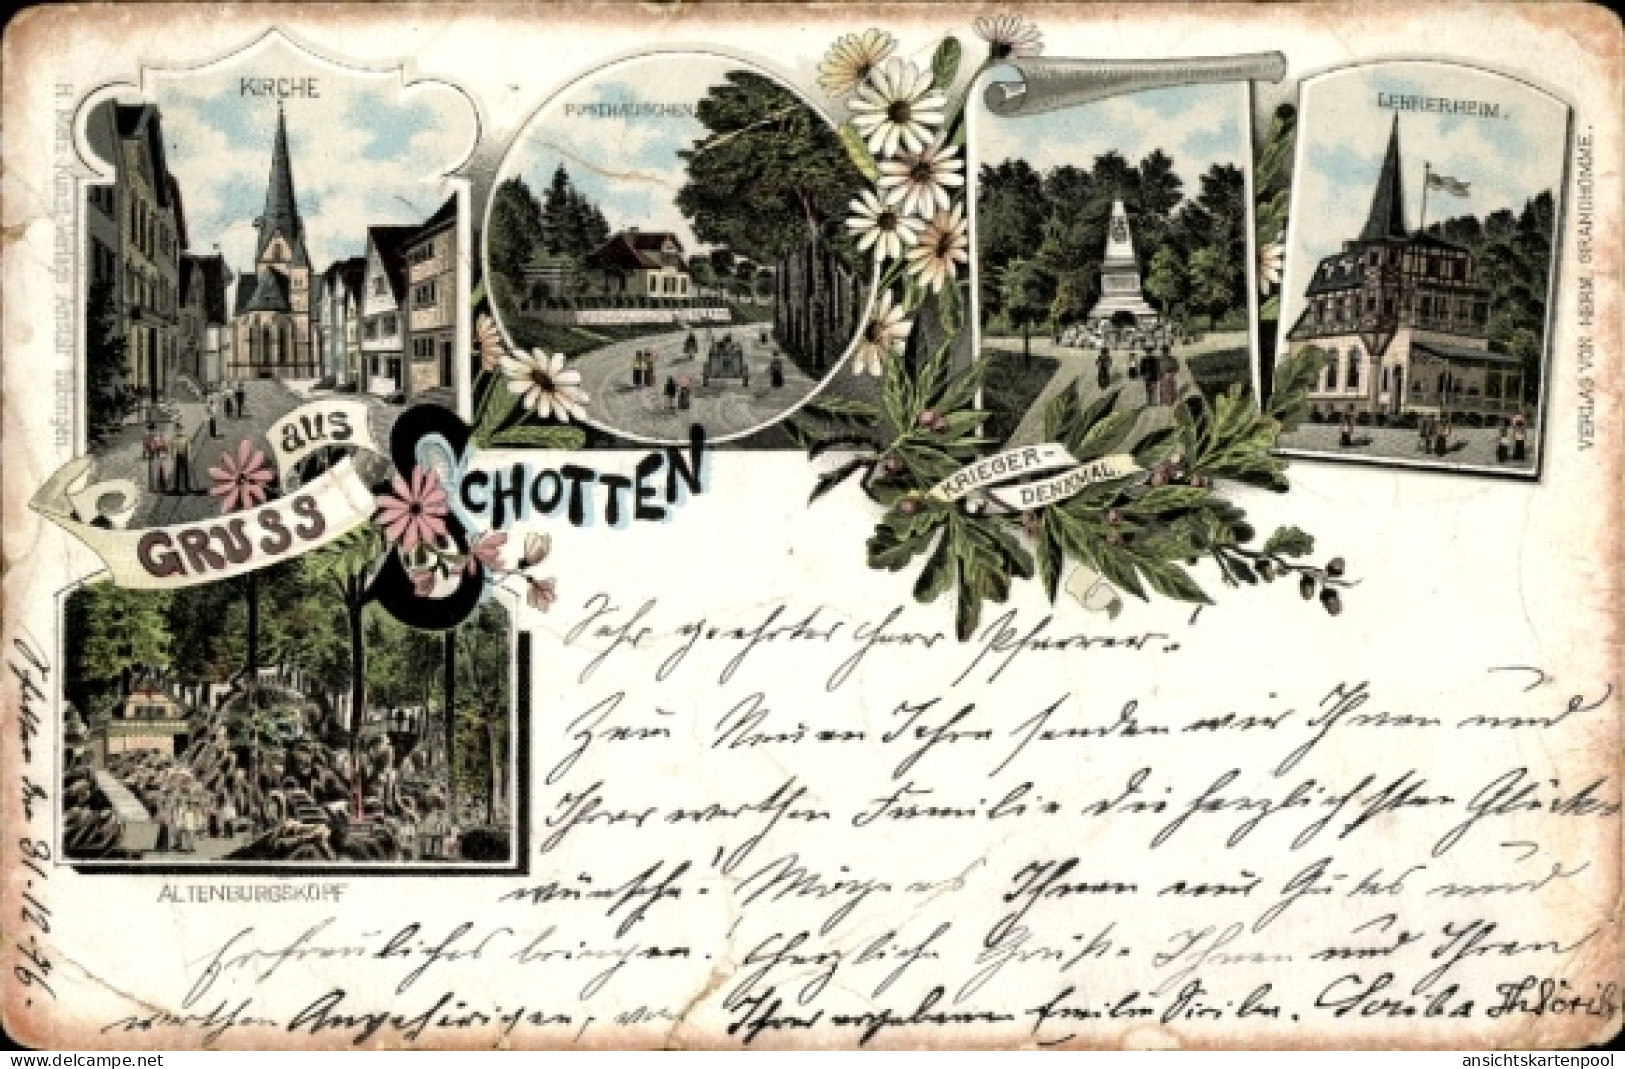 KIRCHE
POSTHÄUSCHEN.
LEHRERHEIM.
VERLAG VON HERM. GRANDHOMME.
GRUSS aus SCHOTTEN
KRIEGER-
DENKMAL.
ALTENBURGSKOPF
Schotten den 31.12.96.
Sehr geehrter Herr Pfarrer!
Zum Neuen Jahre senden wir Ihnen und
Ihrer werthen Familie die herzlichsten Glück-
wünsche! Möge es Ihnen nur Gutes und
Erfreuliches bringen. Herzliche Grüße Ihnen und Ihren
werthen Angehörigen, von Ihrer ergebenen Emilie
ansichtskartenpool